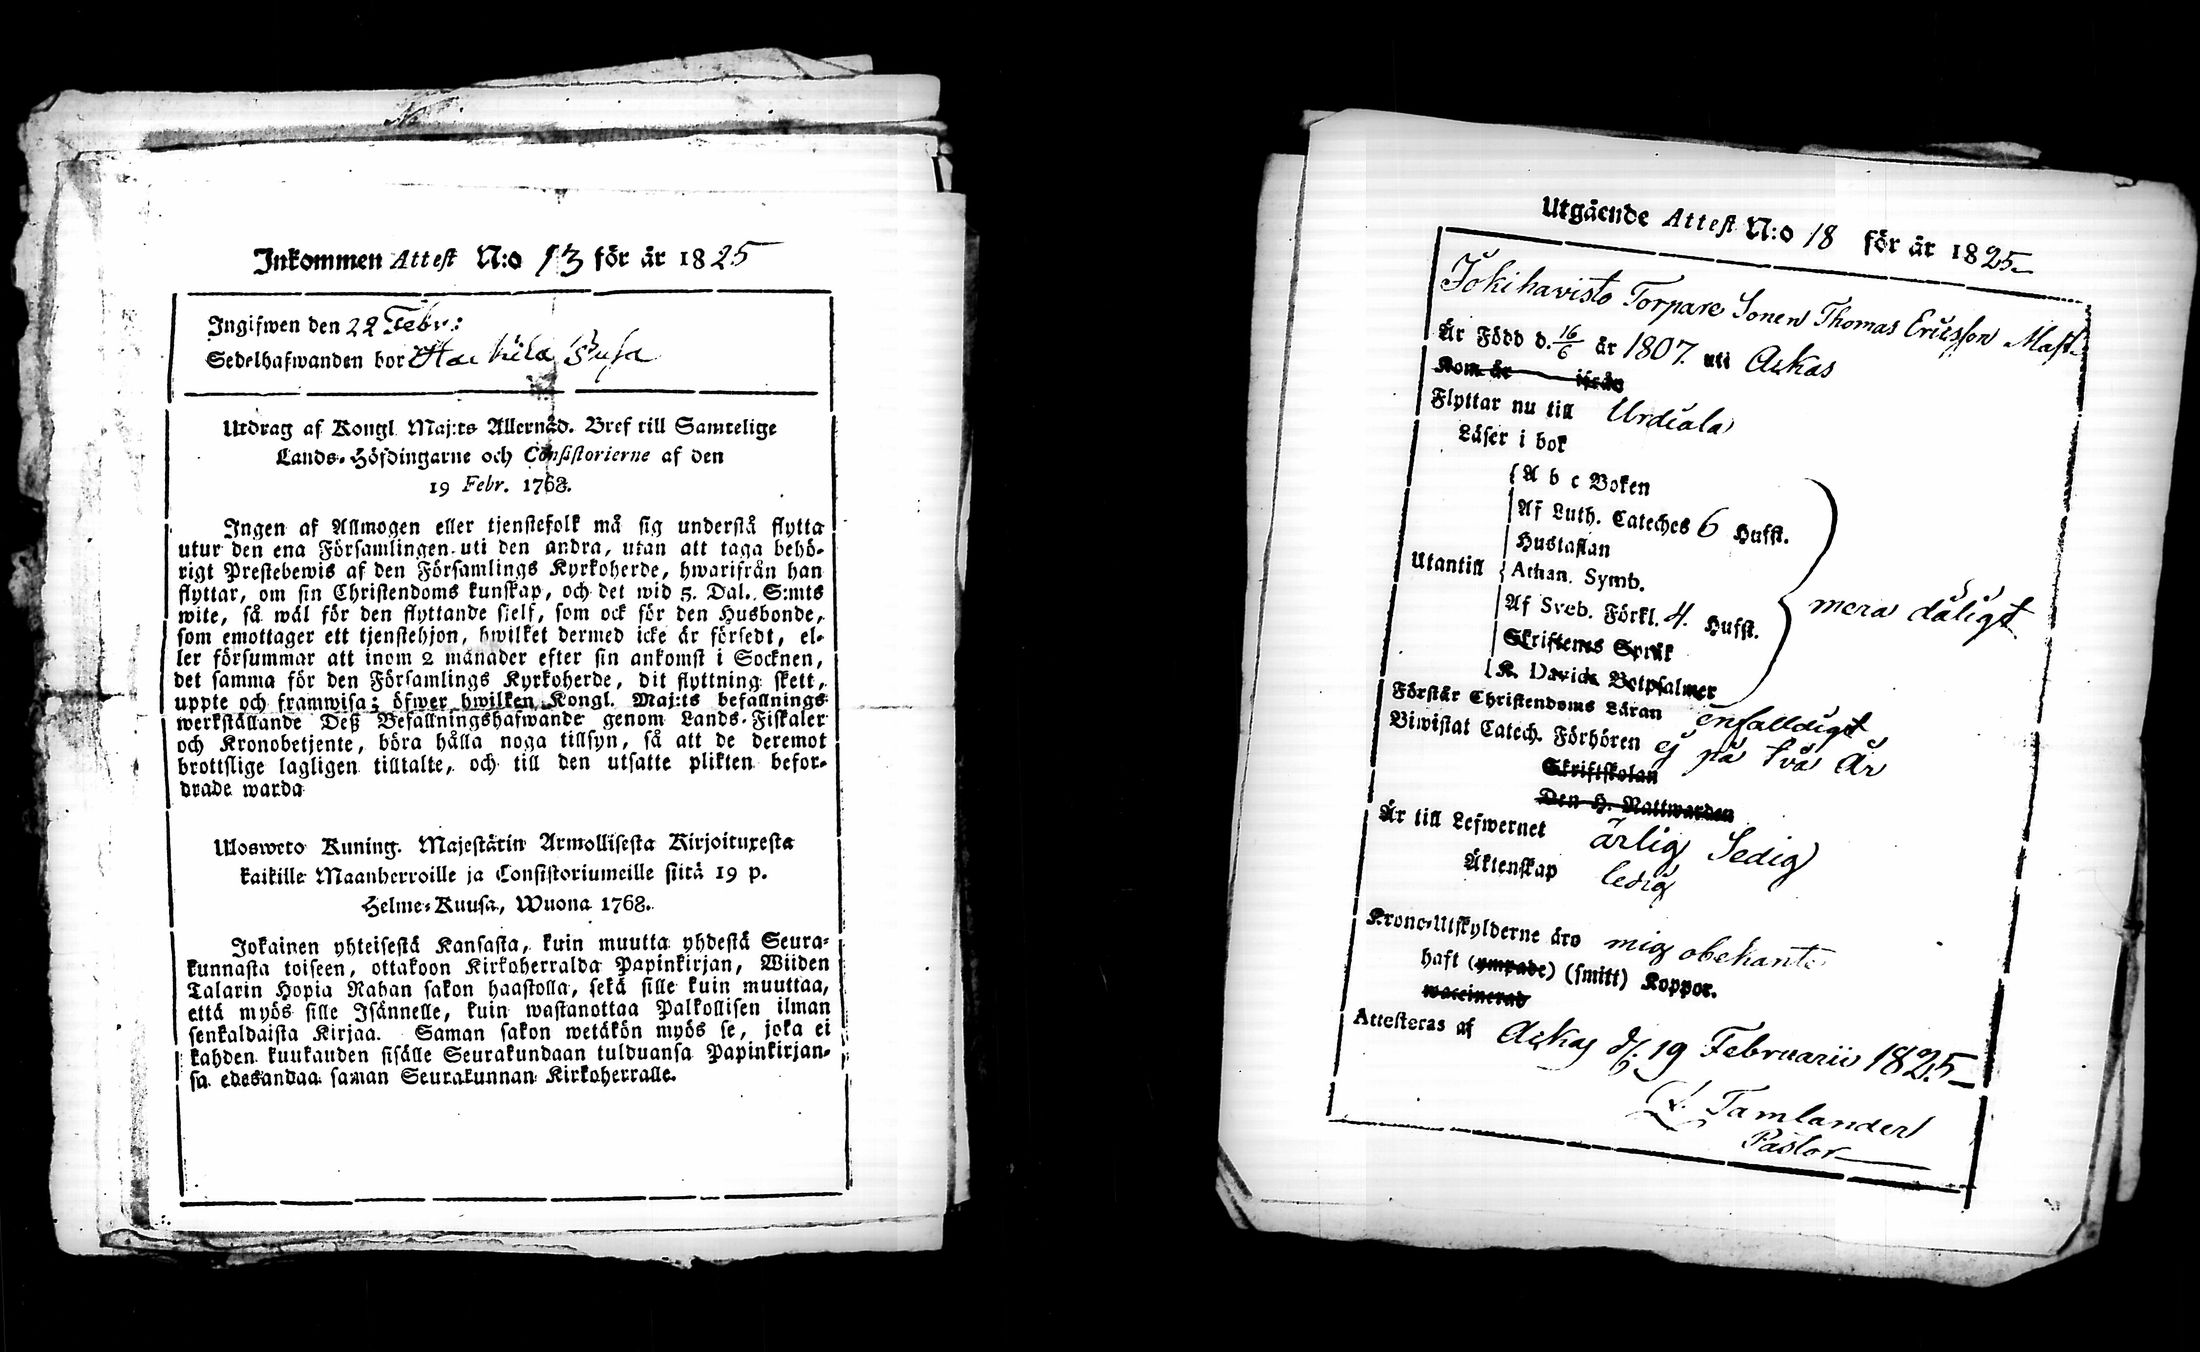 Inkommen Attest N:o 13 för år 1825
Ingifwen den 22 Febr:
Sedelhafwanden bor
Utdrag af Kongl. Maj:ts Allernåd. Bref till Samtelige
Lands-Höfdingarne och Consistorierne af den
19 Febr. 1768.
Ingen af Allmogen eller tjenstefolk må sig understå flytta
utur den ena Församlingen uti den andra, utan att taga behö-
rigt Prestebewis af den Församlings Kyrkoherde, hwarifrån han
flyttar, om sin Christendoms kunskap, och det wid 5. Dal. S:mts
wite, så wäl för den flyttande sjelf, som ock för den Husbonde,
som emottager ett tjenstehjon, hwilket dermed icke är försedt, el-
ler försummar att inom 2 månader efter sin ankomst i Socknen,
det samma för den Församlings Kyrkoherde, dit flyttning skett,
uppte och framwisa; öfwer hwilken Kongl. Maj:ts befallnings
werkställande Deß Befallningshafwande genom Lands-Fiskaler
och Kronobetjente, böra hålla noga tillsyn, så att de deremot
brottslige lagligen tilltalte, och till den utsatte plikten befor-
drade warda
Ulosweto Kuning. Majestätin Armollisesta Kirjoituxesta
kaikille Maanherroille ja Consistoriumeille siitä 19 p.
Helme-Kuusa, Wuona 1768.
Jokainen yhteisestä Kansasta, kuin muutta yhdestä Seura-
kunnasta toiseen, ottakoon Kirkoherralda Papinkirjan, Wiiden
Talarin Hopia Rahan sakon haastolla, sekä sille kuin muuttaa,
että myös sille Isännelle, kuin wastanottaa Palkollisen ilman
senkaldaista Kirjaa. Saman sakon wetäkön myös se, joka ei
kahden kuukauden sisälle Seurakundaan tulduansa Papinkirjan-
sa edesandaa saman Seurakunnan Kirkoherralle.
Utgående Attest N:o 18 för år 1825
Jokihavisto Torpare Sonen Thomas Ericsson Matt
Är Född d. 16/6 år 1807. uti Ackas
Kom år ifrån
Flyttar nu till Urdiala
Läser i bok
A b c Boken
Af Luth. Cateches 6 Hufst.
Hustaflan
Utantill Athan. Symb. mera dåligt
Af Sveb. Förkl. 4. Hufst.
Skriftenes Språk
K. Davids Botpsalmer
Förstår Christendoms Läran enfalldigt
Biwistat Catech. Förhören ej på två År
Skriftskolan
Den H. Nattwarden
Är till Lefwernet ärlig Sedig
Äktenskap ledig
Krono-Utskylderne äro mig obekante
haft (ympade) (smitt) Koppor.
waccinerad
Attesteras af Ackas d. 19 Februarii 1825
Tamlander
Pastor